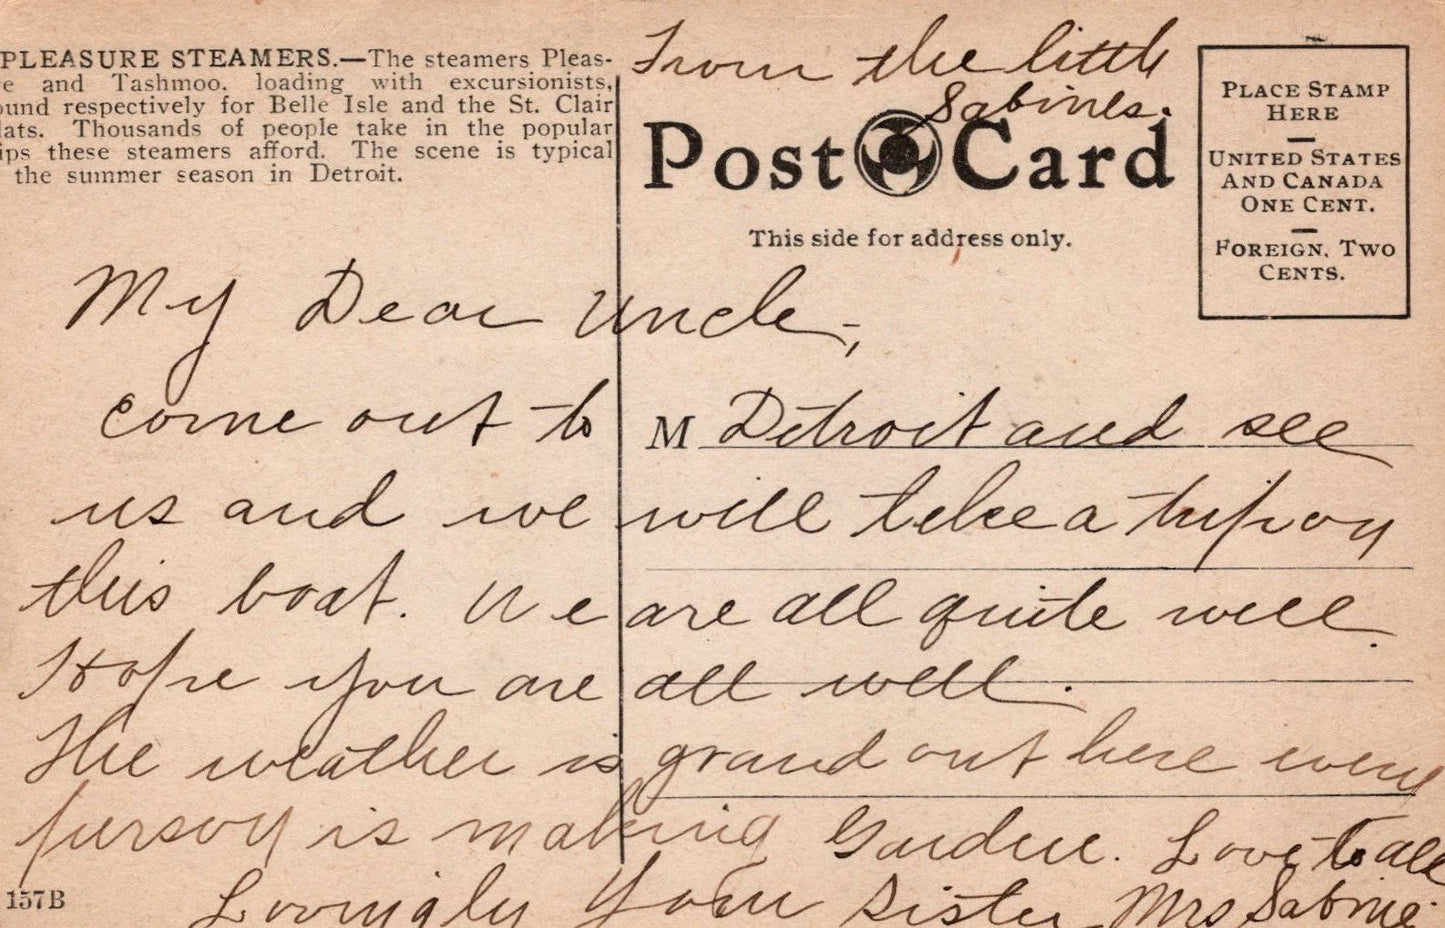 PLEASURE STEAMERS.—The steamers Pleas-
e and Tashmoo, loading with excursionists,
ound respectively for Belle Isle and the St. Clair
lats. Thousands of people take in the popular
ips these steamers afford. The scene is typical
the summer season in Detroit.
From the little
Sabines.
Post Card
This side for address only.
PLACE STAMP
HERE
—
UNITED STATES
AND CANADA
ONE CENT.
—
FOREIGN, TWO
CENTS.
My Dear Uncle,
come out to M Detroit and see
us and we will take a trip on
this boat. We are all quite well.
Hope you are all well.
The weather is grand out here every
person is making Garden. Love to all
Lovingly Your Sister Mrs Sabine.
157B